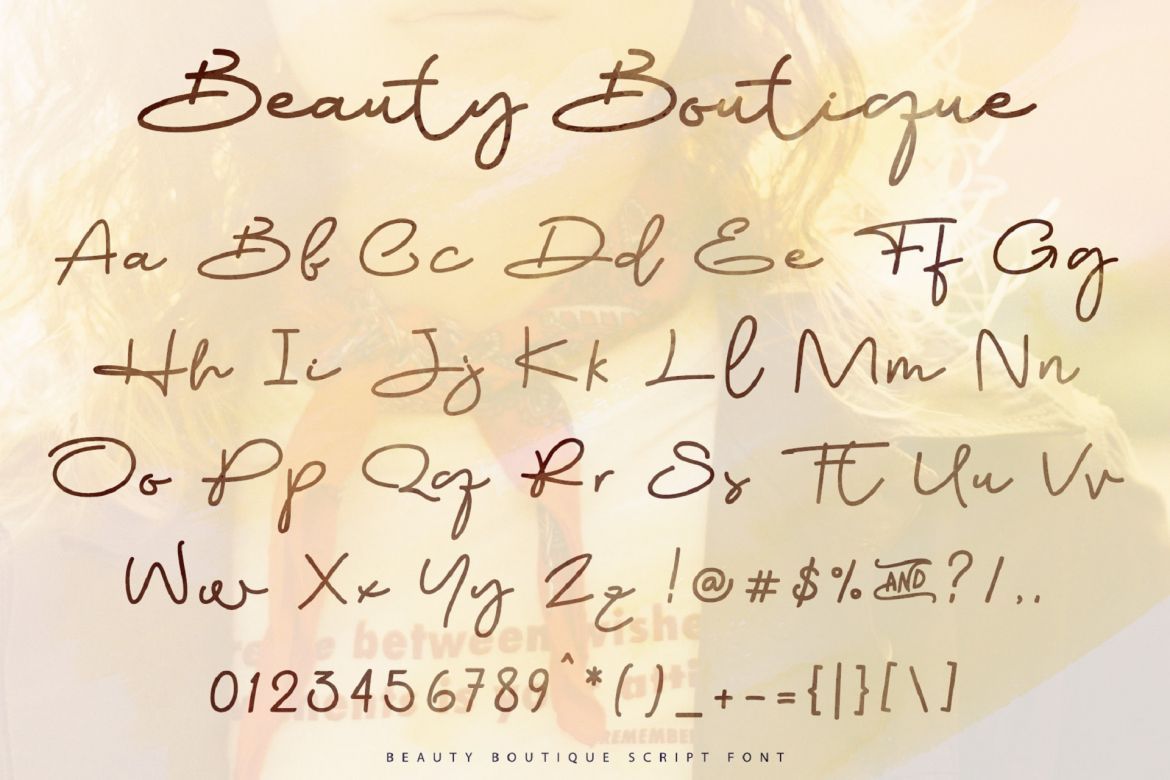 Beauty Boutique
Aa Bb Cc Dd Ee Ff Gg
Hh Ii Jj Kk Ll Mm Nn
Oo Pp Qq Rr Ss Tt Uu Vv
Ww Xx Yy Zz ! @ # $ % AND ? / , .
between wishe
0123456789^*()_+-={|}[\]
REMEMBE
BEAUTY BOUTIQUE SCRIPT FONT